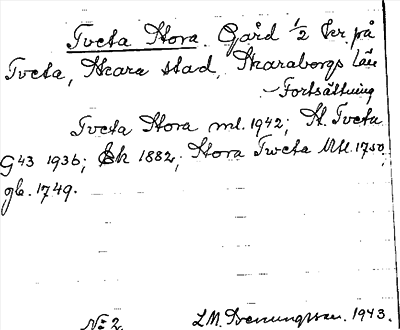 Tveta Stora. Gård 1/2 kr. på
Tveta, Skara stad, Skaraborgs län
Fortsättning
Tveta Stora ml. 1942; St. Tveta
G43 1936; Sk 1882; Stora Tweta Mtl. 1750;
gb. 1749.
No 2. L.M. 1943.